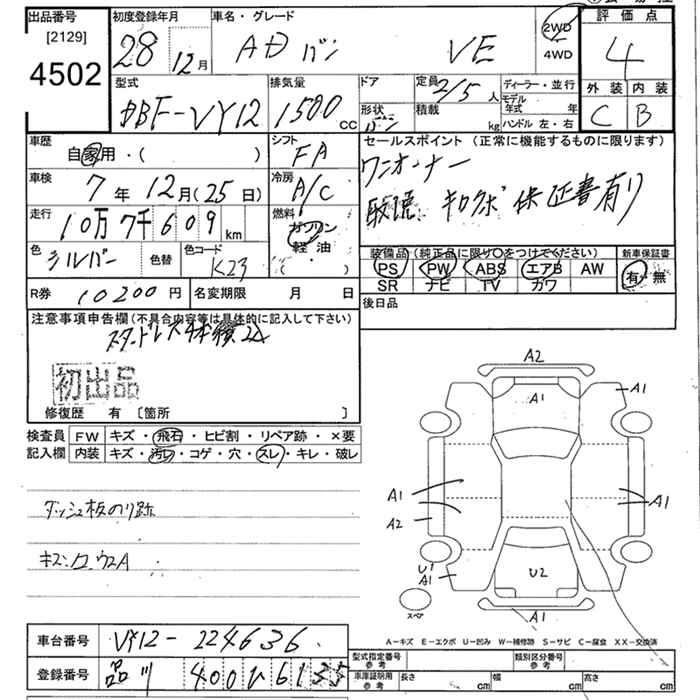 出品番号
[2129]
4502
初度登録年月
28 12月
車名・グレード
ADバン VE
2WD
4WD
評価点
4
外装 内装
C B
型式
DBF-VY12
排気量
1500 CC
ドア
形状
バン
定員 2/5 人
積載 kg
ディーラー・並行
モデル年式 年
ハンドル 左・右
車歴
自家用・( )
シフト
FA
セールスポイント (正常に機能するものに限ります)
ワンオーナー
取説 キロク簿 保証書有り
車検
7年 12月(25日)
冷房
A/C
走行
10万7千609 km
燃料
ガソリン
軽油
( ・ )
色
シルバー
色替
色コード
K23
装備品 (純正品に限り○をつけてください)
PS PW ABS エアB AW
SR ナビ TV カワ
新車保証書
有・無
R券 10200円
名変期限 月 日
後日品
注意事項申告欄 (不具合内容等は具体的に記入して下さい)
スタッドレス4本積込
初出品
修復歴 有 [箇所 ]
検査員記入欄
FW キズ・飛石・ヒビ割・リペア跡・×要
内装 キズ・汚レ・コゲ・穴・スレ・キレ・破レ
ダッシュ板のり跡
A2
A1
A1
A1
A2
A1
U1
A1
U2
A1
スペア
A-キズ E-エクボ U-凹み W-補修跡 S-サビ C-腐食 XX-交換済
車台番号 VY12-224636
登録番号 品川 400ひ6135
型式指定番号 参考
類別区分番号 参考
車庫証明用 参考
長さ cm
幅 cm
高さ cm